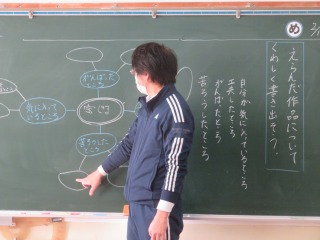 め
2/
えらんだ作品について
くわしく書き出そう。
自分が気に入っているところ
工夫したところ
がんばったところ
苦ろうしたところ
がんばった
ところ
気に入って
いるところ
苦ろうした
ところ